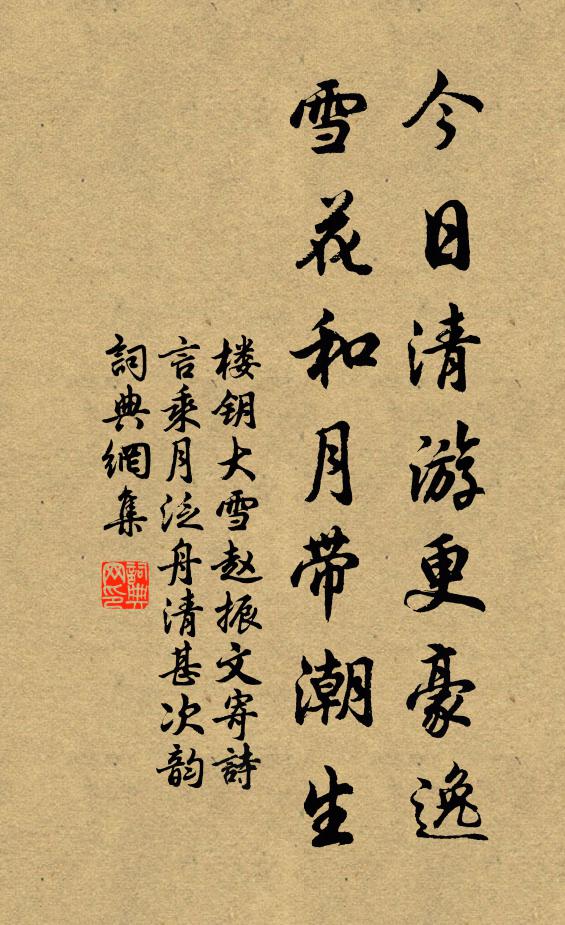 今日清游更豪逸
雪花和月带潮生
楼钥大雪赵振文寄詩
言乘月泛舟清甚次韵
詞典網集
詞典网印